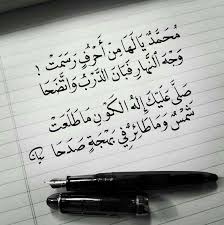 مُحَمَّدٌ يَا لَهَا مِنْ أَحْرُفٍ رَسَمَتْ !
وَجْهَ النَّهَارِ فَبَانَ الدَّرْبُ وَاتَّضَحَا
صَلَّى عَلَيْكَ إِلَهُ الْكَوْنِ مَا طَلَعَتْ
شَمْسٌ وَمَا طَائِرٌ فِي بَهْجَةٍ صَدَحَا